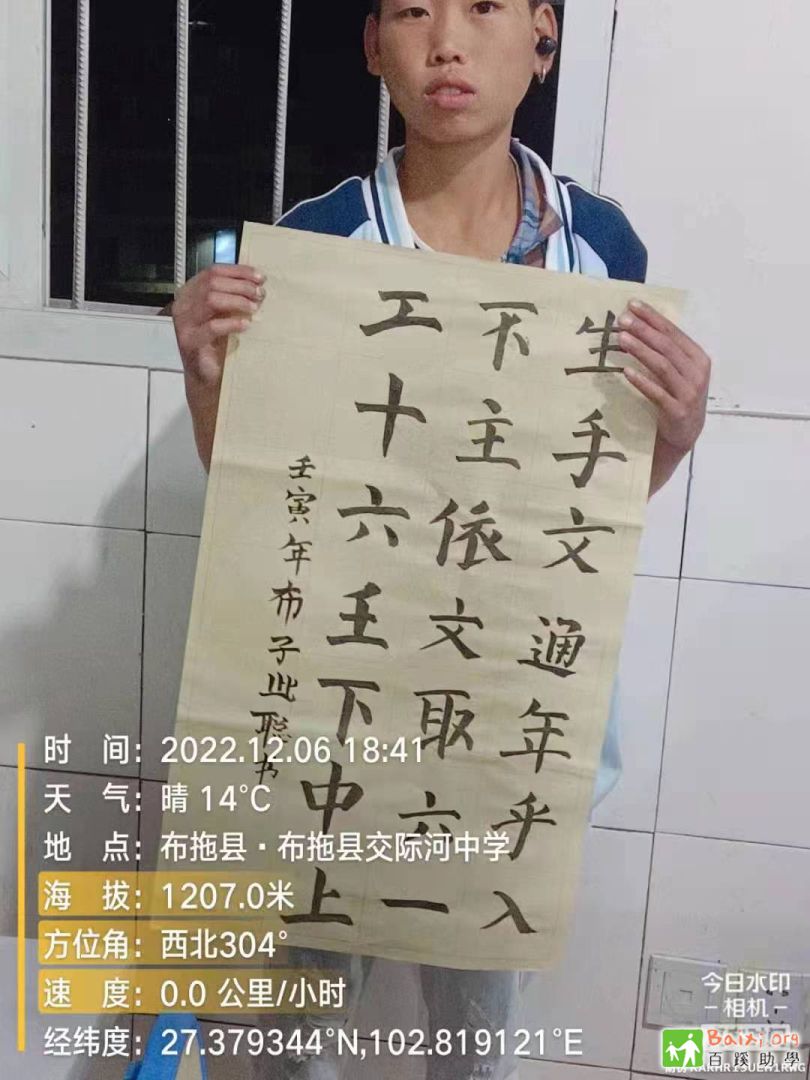 生手文通年乎入
下主依文取六一
工十六壬下中上
壬寅年布子此聪书
时 间：2022.12.06 18:41
天 气：晴 14℃
地 点：布拖县·布拖县交际河中学
海 拔：1207.0米
方位角：西北304°
速 度：0.0 公里/小时
经纬度：27.379344°N,102.819121°E
今日水印
-相机-
Baixi.org
百蹊助學